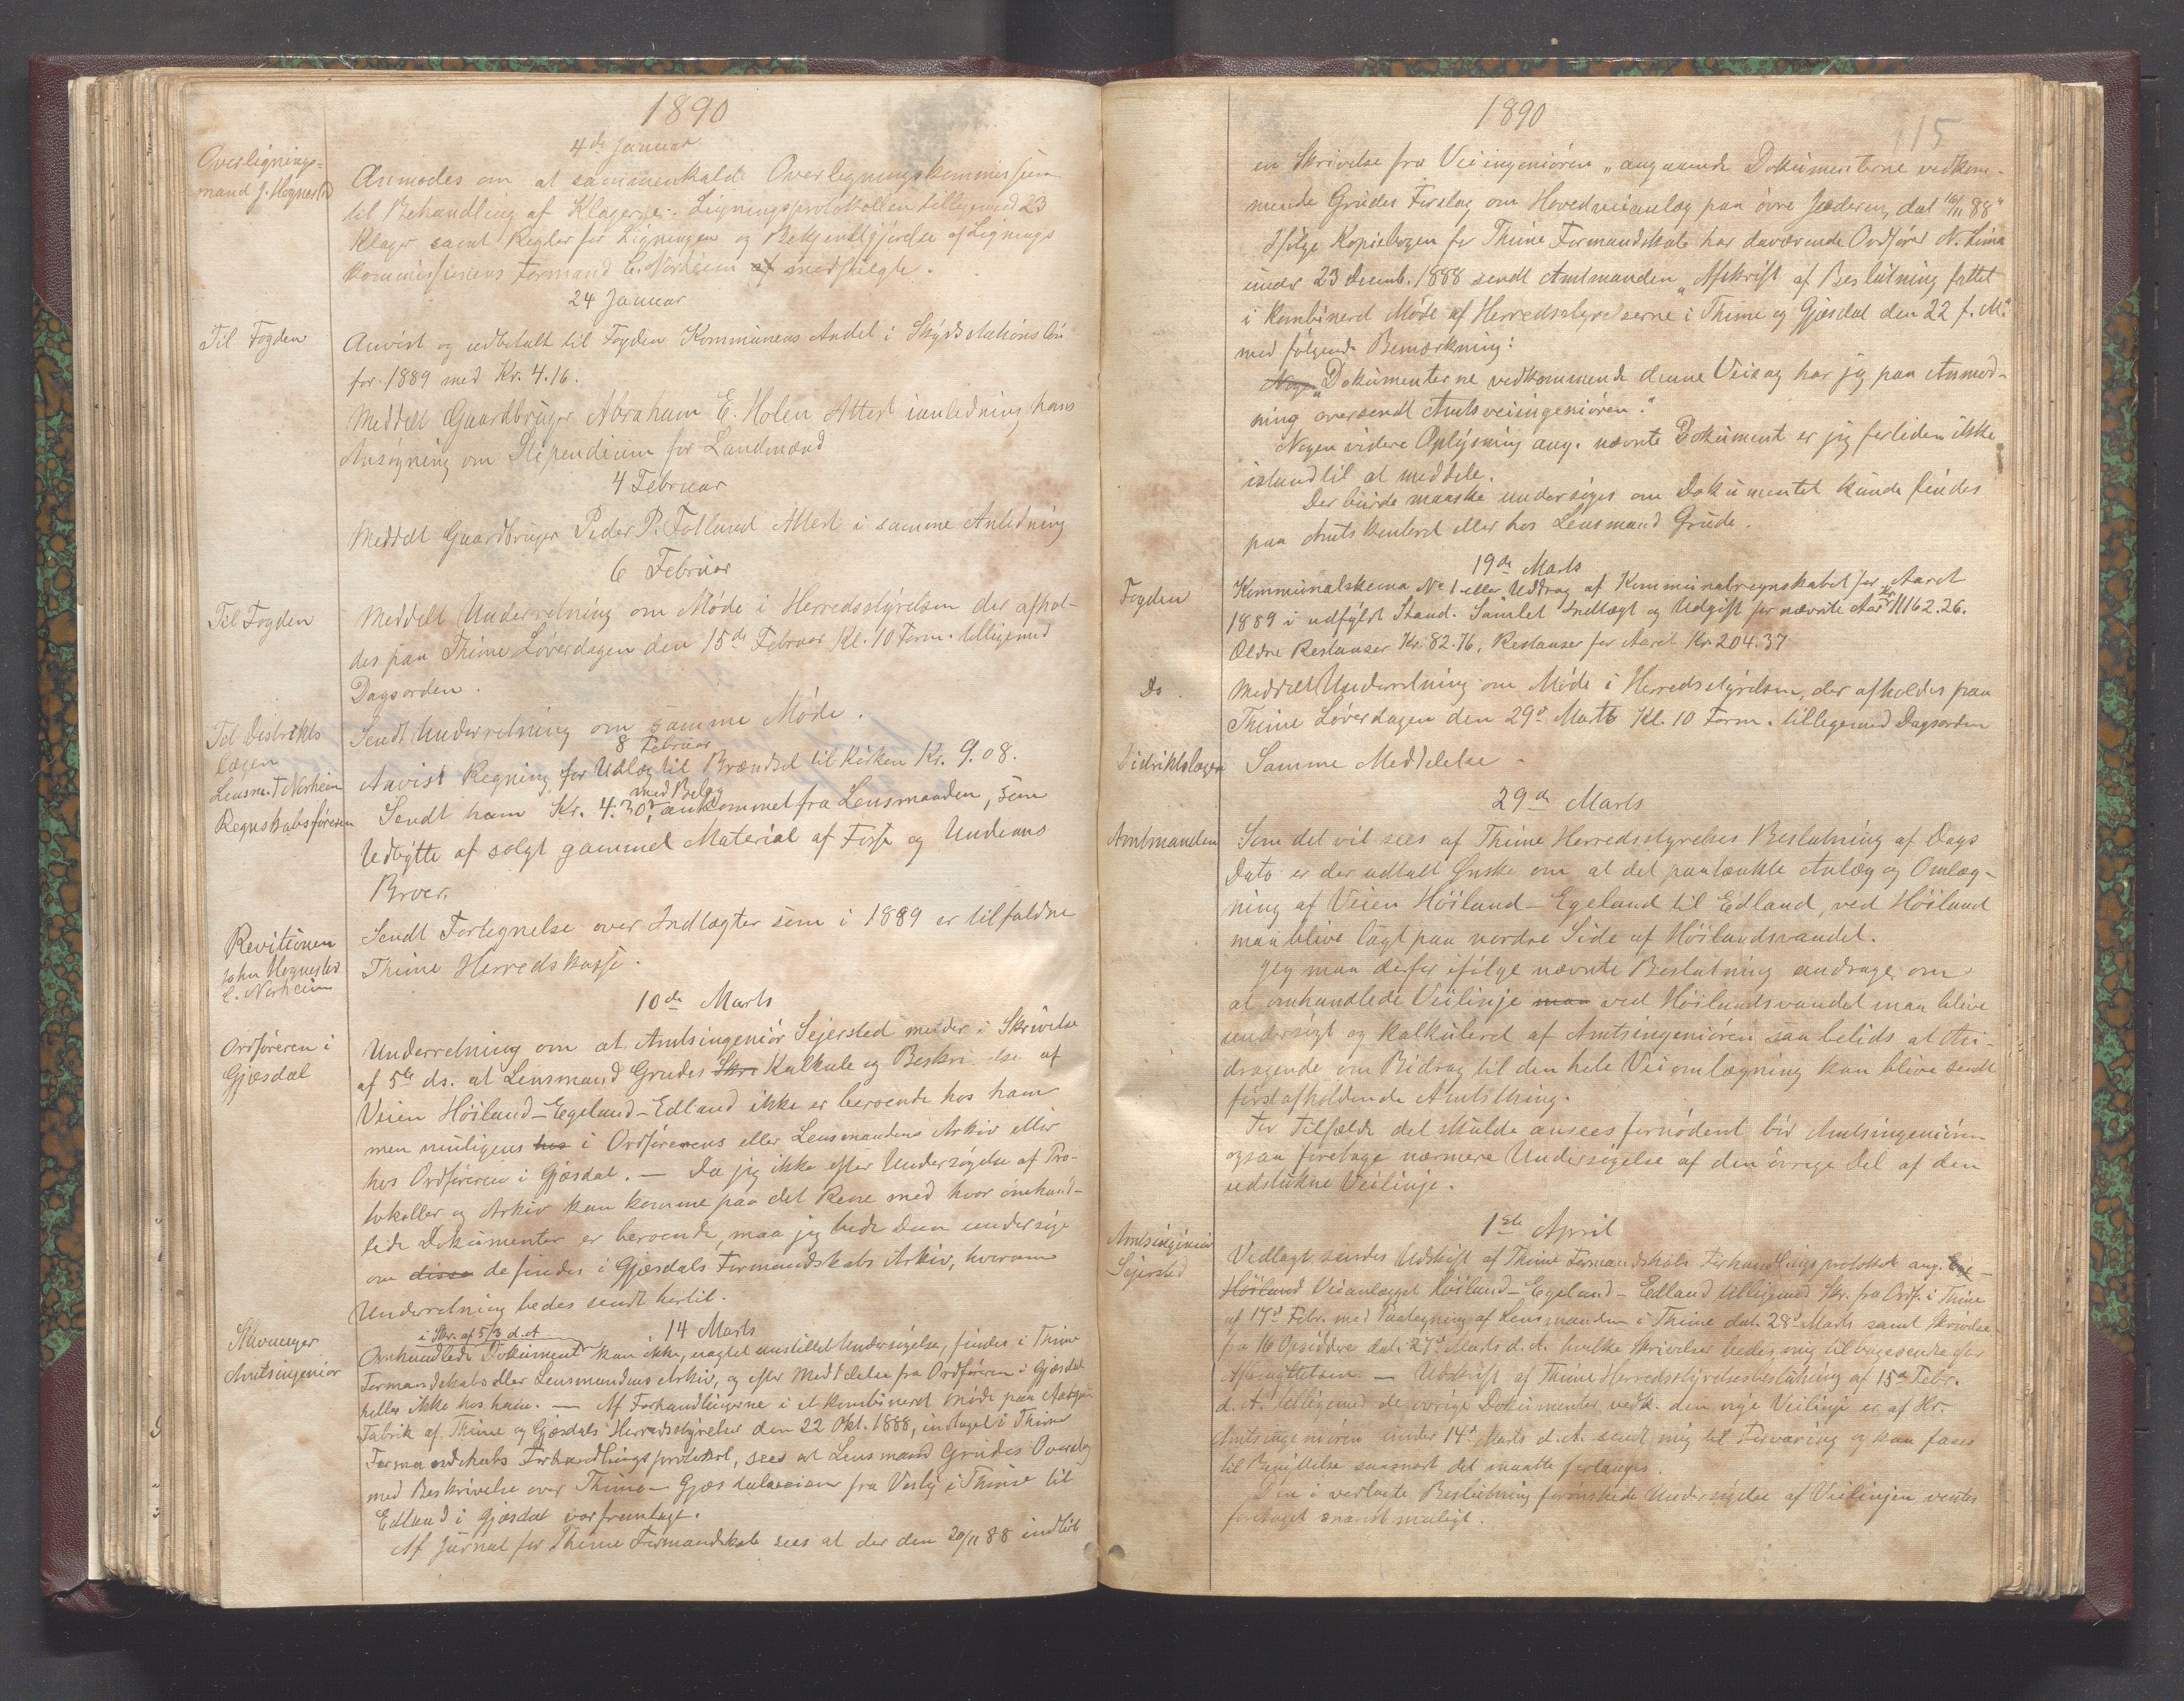 1890
4de Januar
Overlignings=
mand J. Hognestad
Anmodes om at sammenkalde Overligningskommissionen
til Behandling af Klagerne. Ligningsprotokollen tilligemed 23
Klager samt Regler for Ligningen og Bekjendtgjörelse af Lignings
kommissionens Formand E. Norheim af medfulgte.
24 Januar
Til Fogden
Anvist og udbetalt til Fogden Kommunens Andel i Skydsstationslön
for 1889 med Kr. 4.16.
Meddelt Gaardbruger Abraham E. Holen Attest i anledning hans
Ansögning om Stipendium for Landmænd
4 Februar
Meddelt Gaardbruger Peder P. Fotland Attest i samme Anledning
6 Februar
Til Fogden
Meddelt Underretning om Möde i Herredsstyrelsen der afhol-
des paa Thime Löverdagen den 15de Februar Kl. 10 Form. tilligemed
Dagsorden.
Til Distrikts
lægen
Sendt Underretning om samme Möde.
8 Februar
Lensm. T Norheim
Anvist Regning for Udlæg til Brændsel til Kirken Kr. 9.08.
Regnskabsföreren
med Belæg
Sendt ham Kr. 4.30, ankommet fra Lensmanden, som
Udbytte af solgt gammel Material af Fosse og Undems
Broer.
Revitionen
John Hognestad
E. Norheim
Sendt Fortegnelse over Indtægter som i 1889 er tilfaldne
Thime Herredskasse.
10de Marts
Ordföreren i
Gjæsdal
Underretning om at Amtsingeniör Sejersted melder i Skrivelse
af 5te ds. at Lensmand Grudes Skri Kalkule og Beskrivelse af
Veien Höiland-Egeland-Edland ikke er beroende hos ham
men muligens hos i Ordförerens eller Lensmandens Arkiv eller
hos Ordföreren i Gjæsdal. — Da jeg ikke efter Undersögelse af Pro-
tokoller og Arkiv kan komme paa det Rene med hvor omhand-
lede Dokumenter er beroende, maa jeg bede Dem undersöge
om disse de findes i Gjæsdals Formandskabs Arkiv, hvorom
Underretning bedes sendt hertil.
14 Marts
Stavanger
Amtsingeniör
i Skr. af 5/3 d.A
Omhandlede Dokument kan ikke, uagtet anstillet Undersögelse, findes i Thime
Formandskabs eller Lensmandens Arkiv, og efter Meddelelse fra Ordföreren i Gjæsdal
heller ikke hos ham. — Af Forhandlingerne i et kombineret Möde paa Aalgaard
Fabrik af Thime og Gjæsdals Herredsstyrelser den 22 Okt. 1888, indtaget i Thime
Formandskabs Forhandlingsprotokol, sees at Lensmand Grudes Overslag
med Beskrivelse over Thime-Gjæsdalveien fra Vestly i Thime til
Edland i Gjæsdal var fremlagt.
Af Jurnal for Thime Formandskab sees at der den 20/11 88 indlöb
1890
115
en Skrivelse fra Veiingeniören „angaaende Dokumenterne vedkom-
mende Grudes Forslag om Hovedveianlæg paa övre Jæderen, dat 16/11 88"
Ifölge Kopiebogen for Thime Formandskab har daværende Ordförer N. Lima
under 23 Decemb. 1888 sendt Amtmanden „Afskrift af Beslutning fattet
i kombinerd Möde af Herredsstyrelserne i Thime og Gjæsdal den 22 f. M."
med fölgende Bemærkning:
Nogen „Dokumenterne vedkommende denne Veisag har jeg paa Anmod-
ning oversendt Amtsveiingeniören."
Nogen videre Oplysning ang. nævnte Dokument er jeg fortiden ikke
istand til at meddele.
Der burde maaske undersöges om Dokumentet kunde findes
paa Amtskontoret eller hos Lensmand Grude.
19de Marts
Fogden
Kommunalskema No 1 eller Uddrag af Kommunalregnskabet for Aaret
1889 i udfyldt Stand. Samlet Indtægt og Udgift for nævnte Aar Kr 11162.26.
Ældre Restanser Kr. 82.76, Restanser for Aaret Kr 204.37
Do.
Meddelt Underretning om Möde i Herredsstyrelsen, der afholdes paa
Thime Löverdagen den 29de Marts Kl. 10 Form. tilligemed Dagsorden
Distriktslægen
Samme Meddelelse
29de Marts
Amtmanden
Som det vil sees af Thime Herredsstyrelses Beslutning af Dags
Dato er der udtalt Önske om at det paatænkte Anlæg og Omlæg-
ning af Veien Höiland-Egeland til Edland, ved Höiland
maa blive lagt paa nordre Side af Höilandsvandet.
Jeg maa derfor ifölge nævnte Beslutning andrage om
at omhandlede Veilinje maa ved Höilandsvandet maa blive
undersögt og kalkuleret af Amtsingeniören saa betids at An-
dragende om Bidrag til den hele Veiomlægning kan blive sendt
förstafholdende Amtsthing.
For Tilfælde det skulde ansees fornödent bör Amtsingeniören
ogsaa foretage nærmere Undersögelse af den övrige Del af den
udstukne Veilinje.
1ste April
Amtsingeniör
Sejersted
Vedlagt sendes Udskrift af Thime Formandskabs Forhandlingsprotokol ang. Ege-
Höiland Veianlægget Höiland-Egeland-Edland tilligemed Skr. fra Ordf. i Thime
af 17de Febr. med Paategning af Lensmanden i Thime dat. 28de Marts samt Skrivelse
fra 16 Opsiddere dat. 27de Marts d. A. hvilke Skrivelser bedes mig tilbagesendte efter
Afbenyttelsen. — Udskrift af Thime Herredsstyrelsesbeslutning af 15de Febr.
d. A. tilligemed de övrige Dokumenter vedk. den nye Veilinje er af Hr.
Amtsingeniören under 14de Marts d.A. sendt mig til Forvaring og kan faaes
til Benyttelse saasnart det maatte forlanges.
Den i vedlagte Beslutning forönskede Undersögelse af Veilinjen ventes
foretaget snarest muligt.